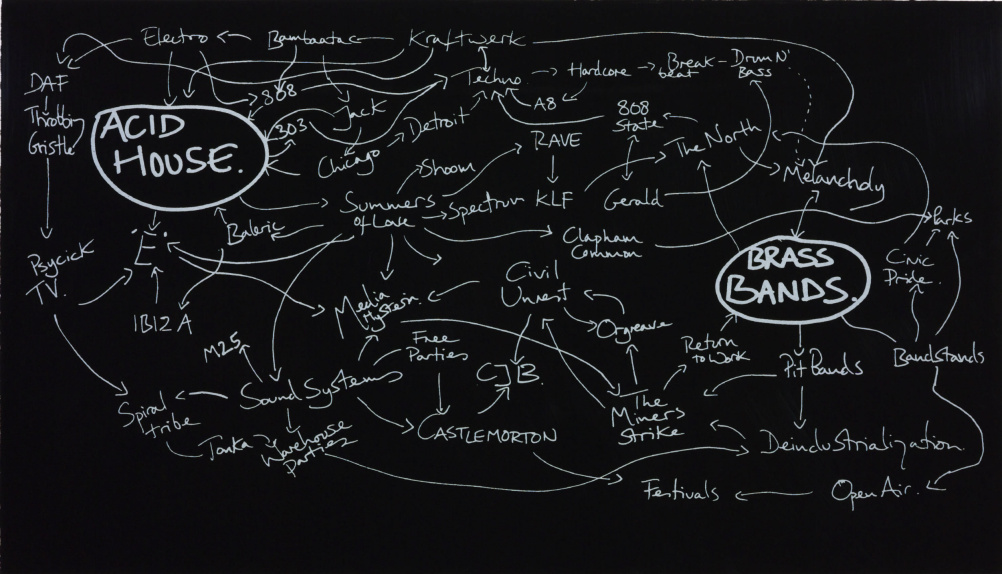 Electro
Bambaata
Kraftwerk
DAF
Throbbin
Gristle
808
303
Jack
Chicago
Detroit
Techno
Hardcore
Break
beat
Drum N'
Bass
A8
808
State
RAVE
The North
Melancholy
ACID
HOUSE.
Shoom
Summers
of Love
Spectrum
KLF
Gerald
Parks
Baleric
Clapham
Common
Civic
Pride.
BRASS
BANDS.
Psycick
TV.
'E'
IBIZA
Media
Hysteria
Civil
Unrest
Orgreave
Return
to Work
Pit Bands
Bandstands
M25
Free
Parties
CJB.
Sound Systems
Spiral
tribe
Tonka
Warehouse
Parties
CASTLEMORTON
The
Miners
Strike
Deindustrialization
Festivals
Open Air.